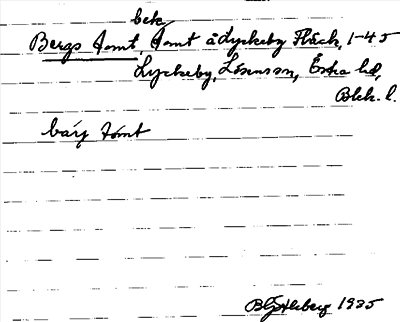 bek.
Bergs tomt tomt å Lyckeby fläck, 1-45
Lyckeby, Lösenssn, Östra hd,
Blek. l.
bárj tómt
1935